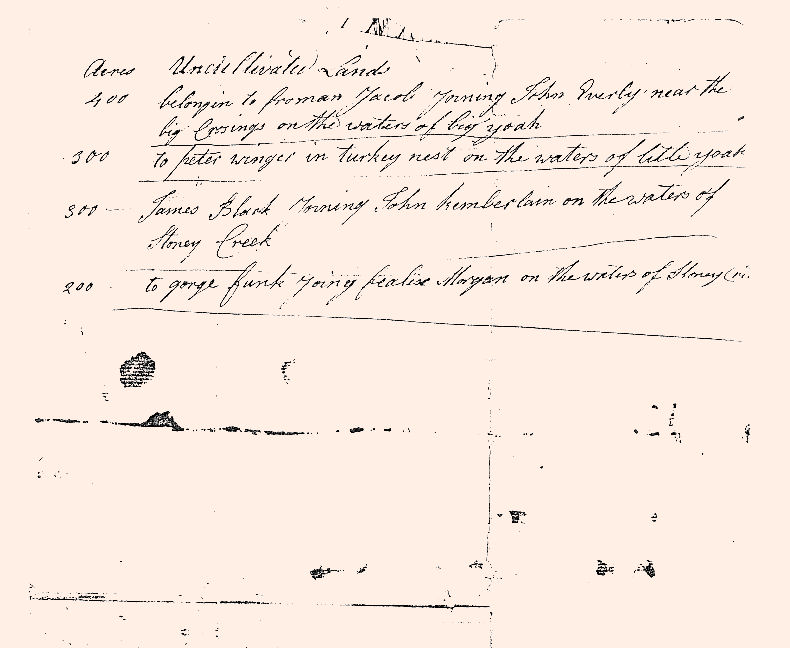 Acres Uncultivated Lands
400 belongin to froman Jacob Joining John Everly near the
big Crosings on the waters of big yoah
300 to peter winger in turkey nest on the waters of litle yoah
300 James Black Joining John kemberlain on the waters of
Stoney Creek
200 to gorge funk Joing Morgan on the waters of Stoney